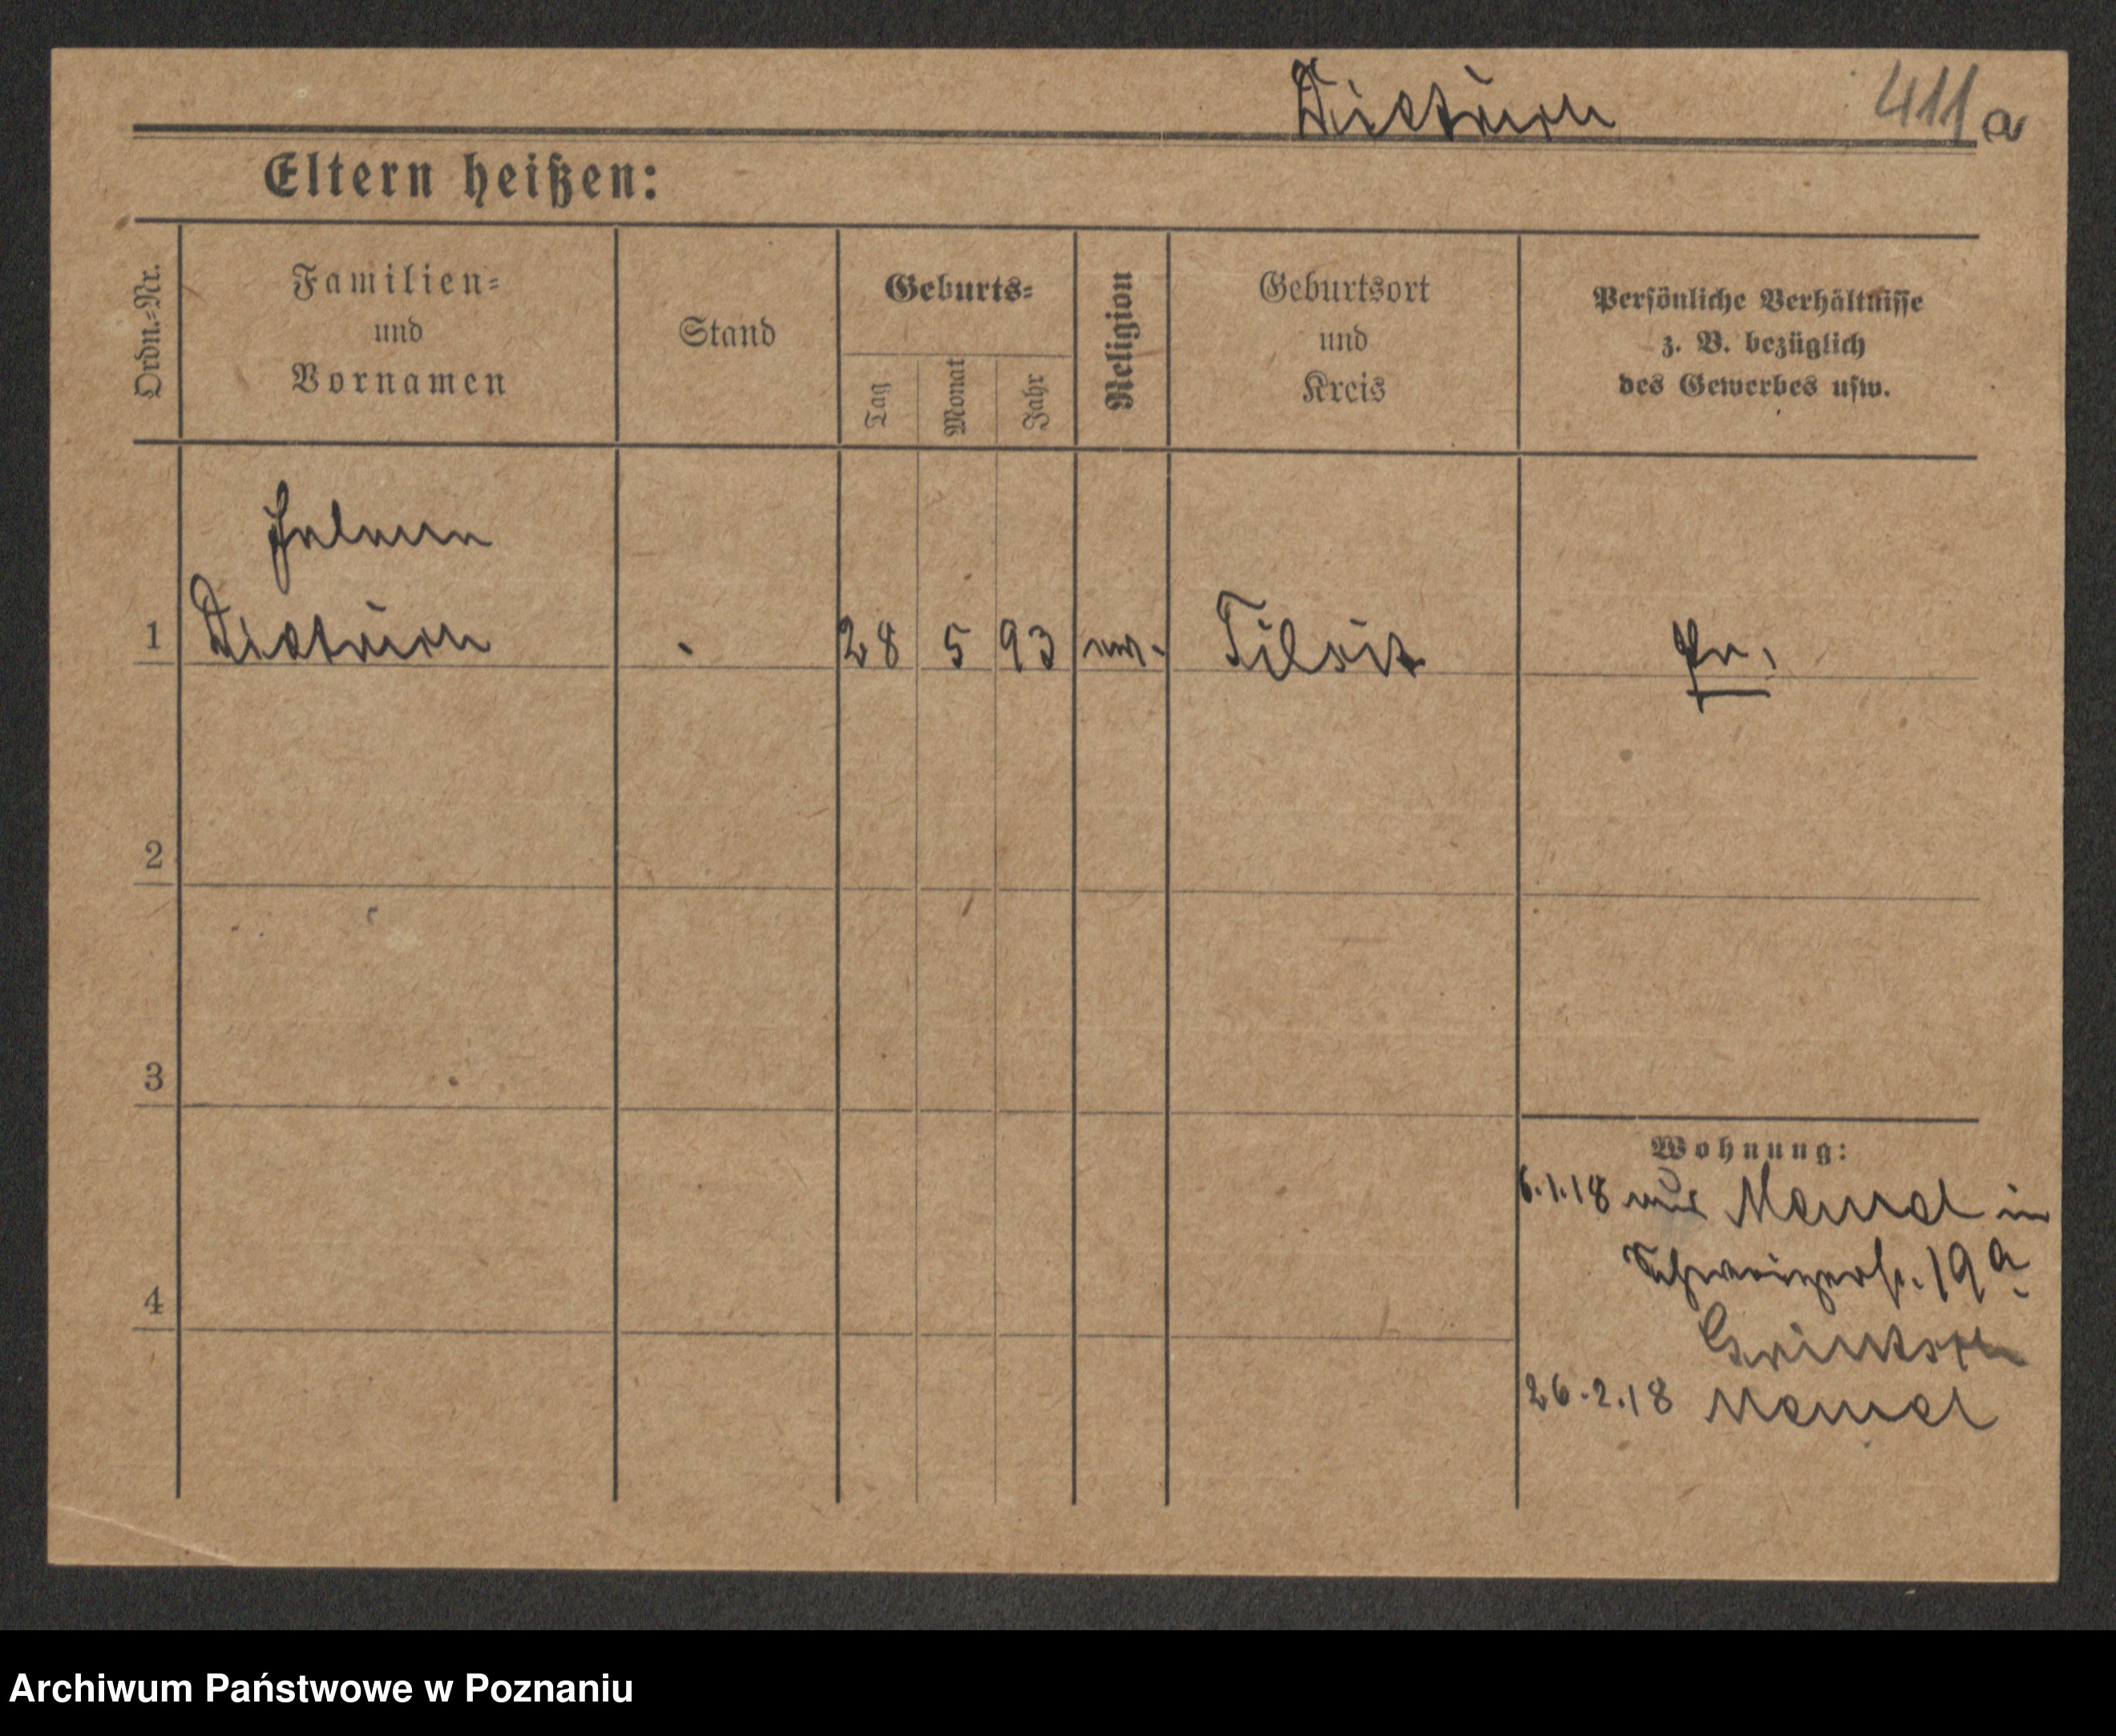 411 a
Eltern heißen:
Ordn.=Nr.
Familien=
und
Vornamen
Stand
Geburts=
Tag
Monat
Jahr
Religion
Geburtsort
und
Kreis
Persönliche Verhältnisse
z. B. bezüglich
des Gewerbes usw.
Helene
1 28 5 93 ev. Tilsit Pr.
2
3
4
Wohnung:
6.1.18 aus Memel in
19a
26.2.18 Memel
Archiwum Państwowe w Poznaniu